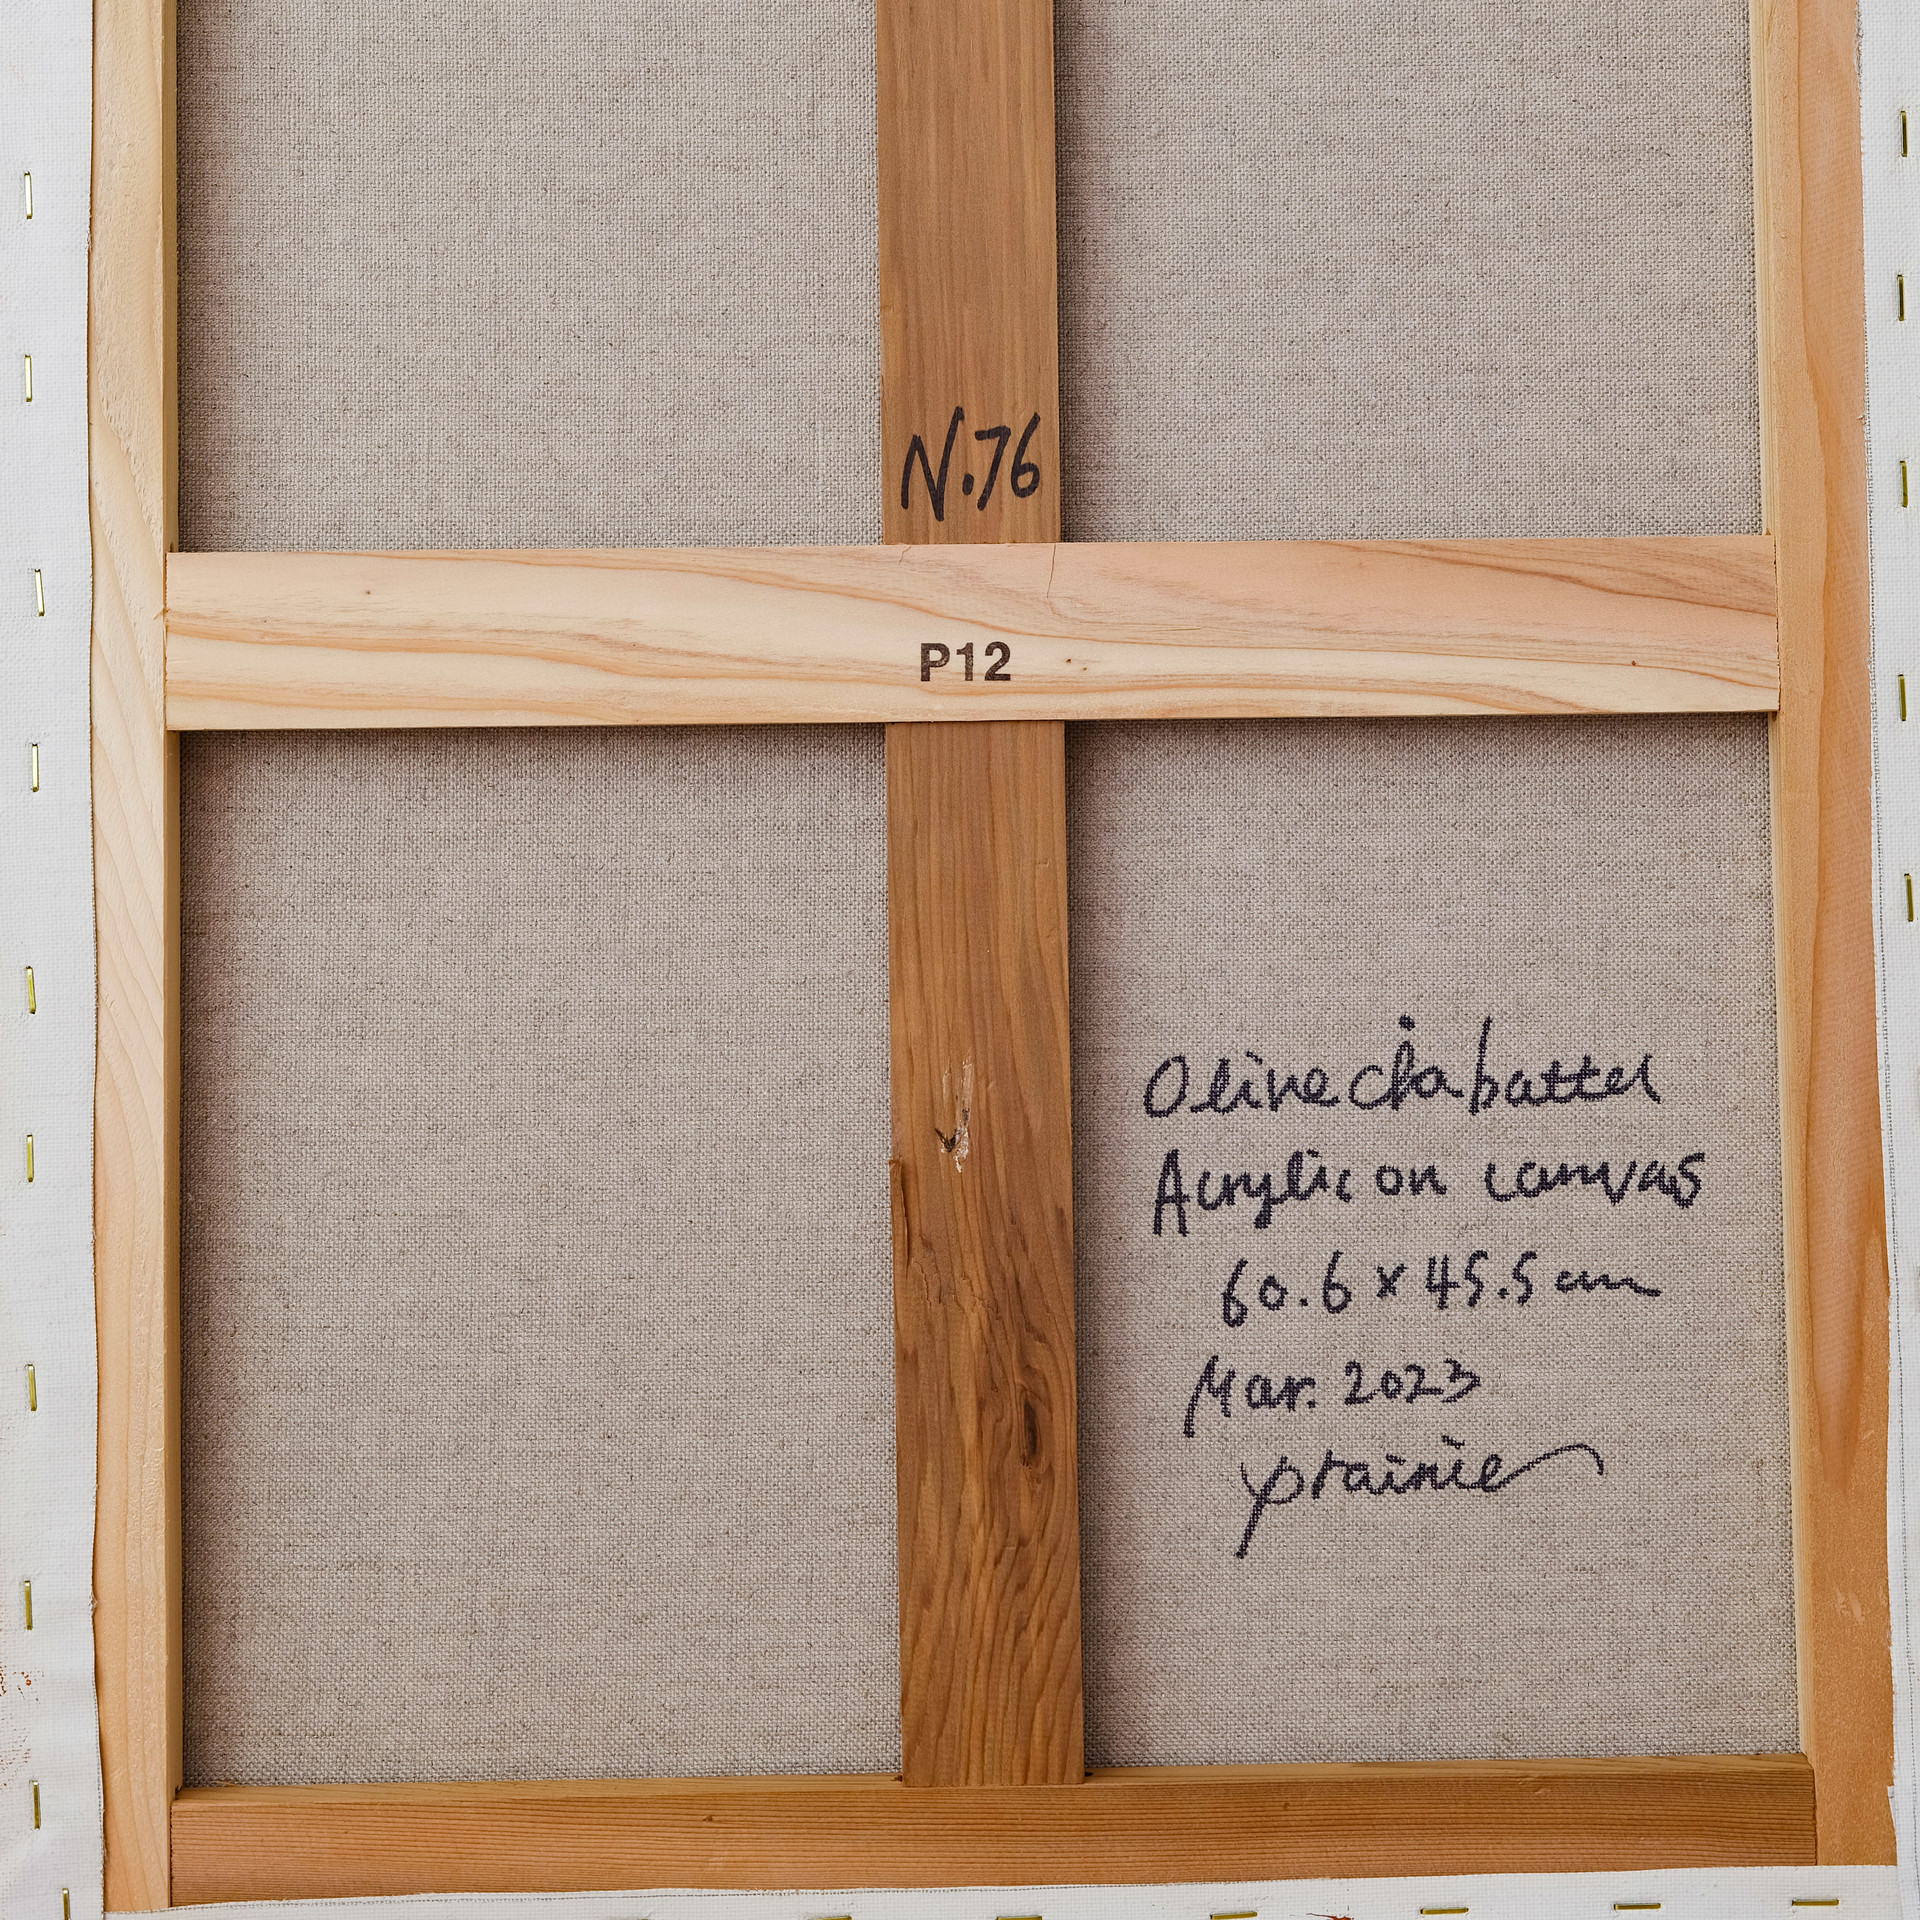 N.76
P12
Olive ciabattel
Acrylic on canvas
60.6 x 45.5 cm
Mar. 2023
prairie